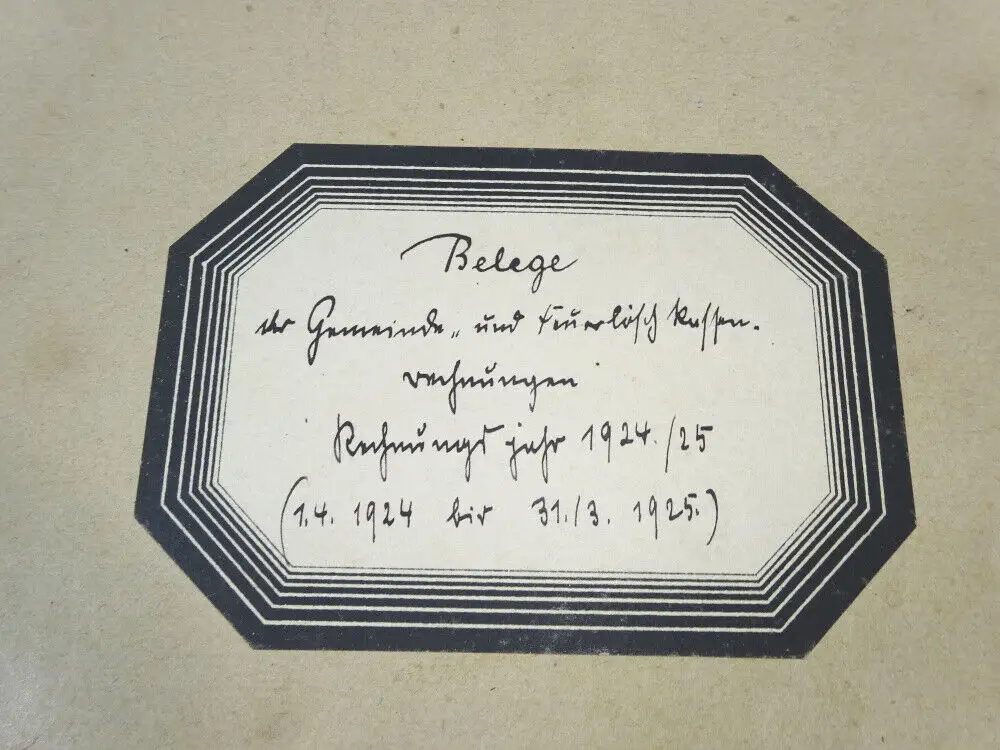 Belege
der Gemeinde- und Feuerlösch Kassen-
rechnungen
Rechnungsjahr 1924./25
(1.4. 1924 bis 31./3. 1925.)